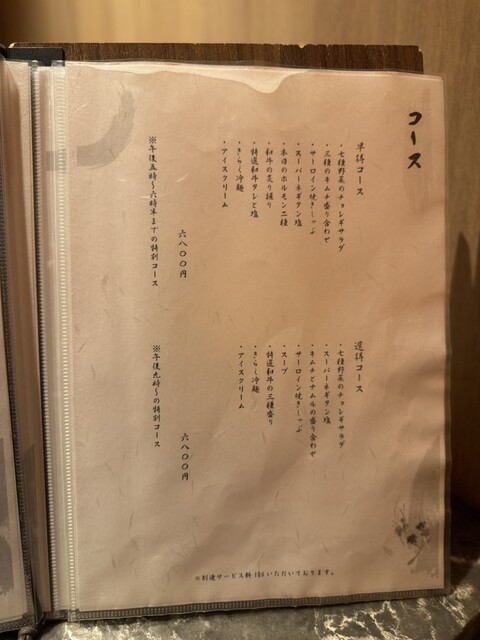 コース
早得コース
・七種野菜のチョレギサラダ
・三種のキムチ盛り合わせ
・サーロイン焼きしゃぶ
・スーパーネギタン塩
・本日のホルモン二種
・和牛の炙り握り
・特選和牛タレと塩
・きらく冷麺
・アイスクリーム
六八〇〇円
※午後五時〜六時半までの特別コース
遅得コース
・七種野菜のチョレギサラダ
・スーパーネギタン塩
・キムチとナムルの盛り合わせ
・サーロイン焼きしゃぶ
・スープ
・特選和牛の三種盛り
・きらく冷麺
・アイスクリーム
六八〇〇円
※午後九時〜の特別コース
※別途サービス料10%いただいております。